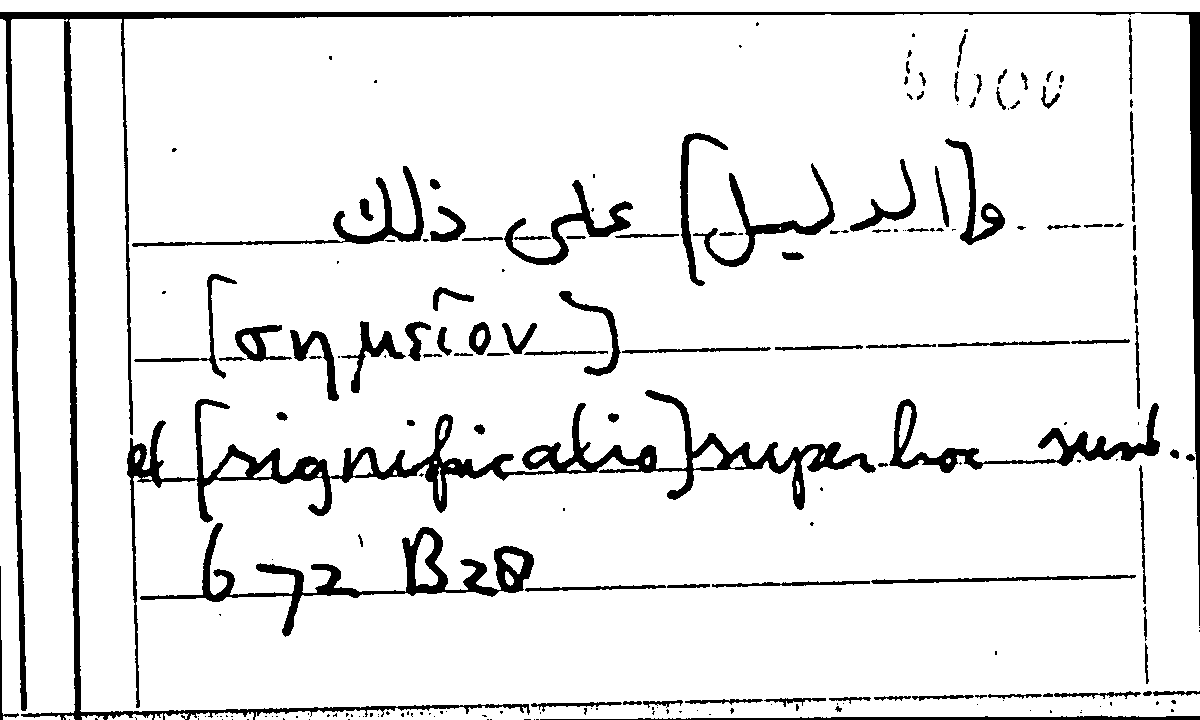 6600
و[الدليل] على ذلك
[σημεῖον]
et [significatio] super hoc sunt..
672 B28